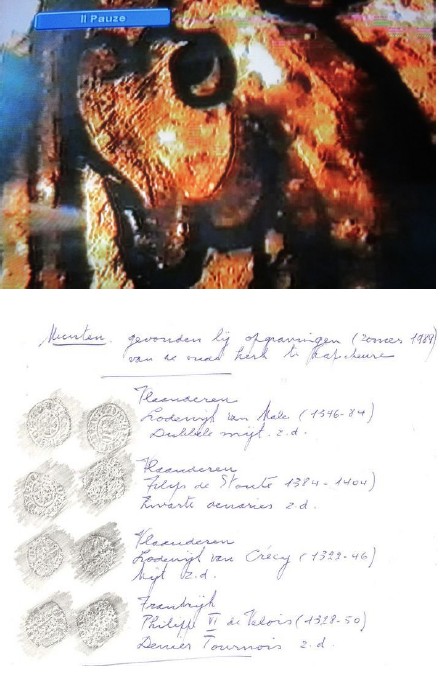 II Pauze
Munten gevonden bij opgravingen (zomer 1989)
van de oude kerk te Lapscheure
Vlaanderen
Lodewijk van Male (1346-84)
Dubbele mijt z.d.
Vlaanderen
Filips de Stoute 1384-1404)
Zwarte denaries z.d.
Vlaanderen
Lodewijk van Crécy (1322-46)
Mijt z.d.
Frankrijk
Philippe VI de Valois (1328-50)
Denier Tournois z.d.